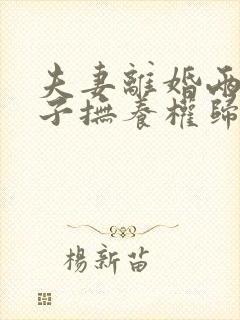 夫妻離婚兩
子撫養權歸
楊新苗